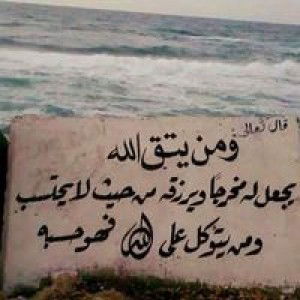 قال تعالى
ومن يتق الله
يجعل له مخرجا ويرزقه من حيث لا يحتسب
ومن يتوكل على الله فهو حسبه